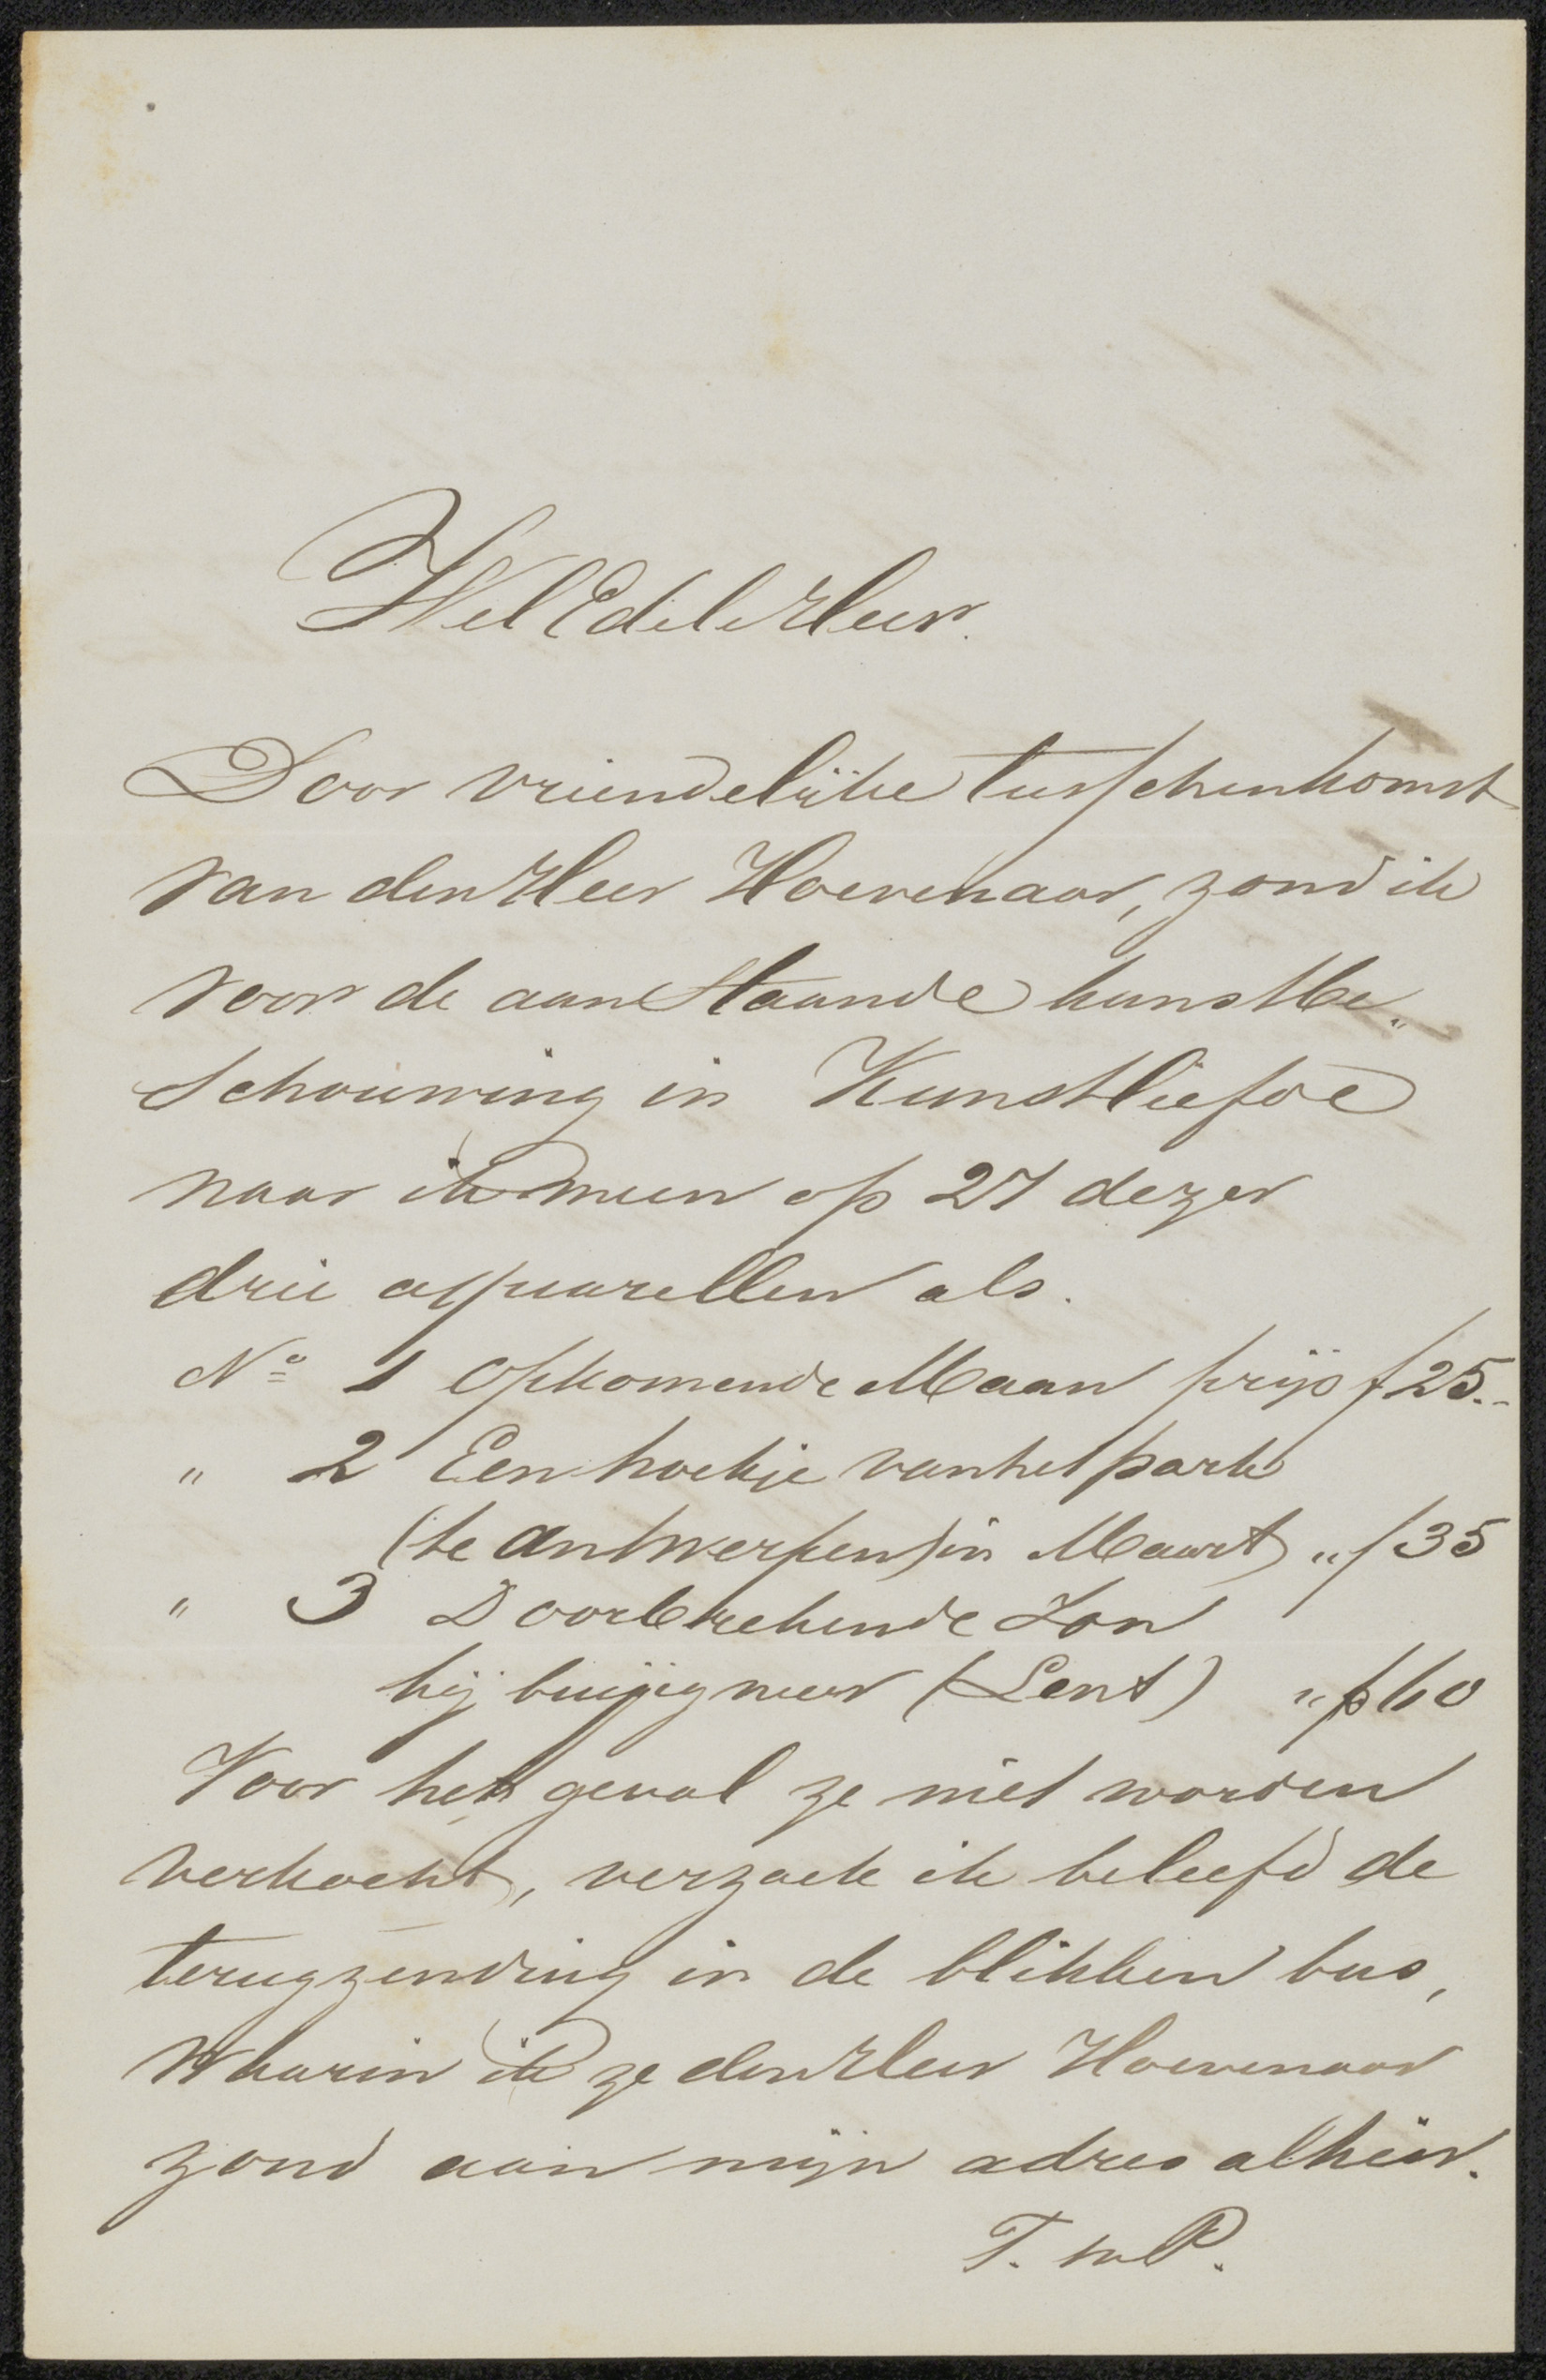 WelEdele Heer.
Door vriendelijke tusschenkomst
van den Heer Hoevenaar, zond ik
voor de aanstaande kunstbe„
schouwing in Kunstliefde
naar ik meen op 27 dezer
drie aquarellen als.
No 1 Opkomende Maan prijs f 25.-
" 2 Een hoekje van het park
(te Antwerpen) in Maart " f 35
" 3 Doorbrekende Zon
bij buijig weer (Lent) " f 60
Voor het geval ze niet worden
verkocht, verzoek ik beleefd de
terugzending in de blikken bus,
waarin ik ze den Heer Hoevenaar
zond aan mijn adres alhier.
T.